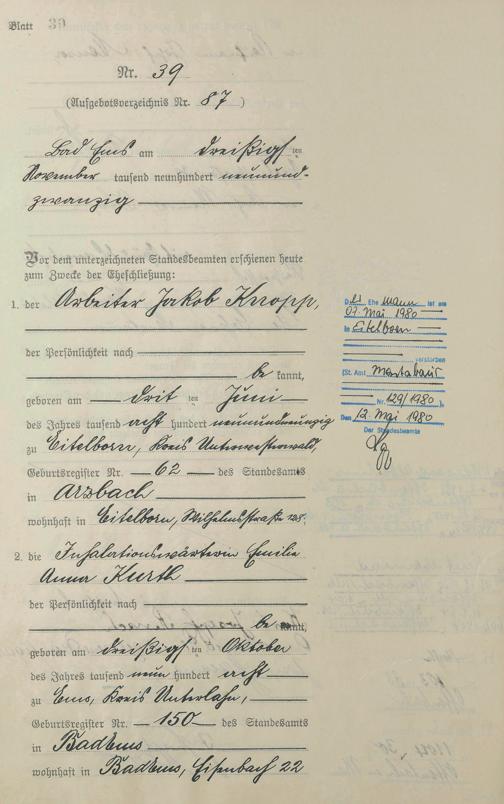 Blatt 39
Nr. 39
(Aufgebotsverzeichnis Nr. 87)
Bad Ems am dreißigsten
November tausend neunhundert neunund-
zwanzig
Vor dem unterzeichneten Standesbeamten erschienen heute
zum Zwecke der Eheschließung:
1. der Arbeiter Jakob Knopp,
der Persönlichkeit nach
be kannt,
geboren am dritten Juni
des Jahres tausend acht hundert neunundneunzig
zu Eitelborn, Kreis Unterwesterwald,
Geburtsregister Nr. 62 des Standesamts
in Arzbach
wohnhaft in Eitelborn, Wilhelmstraße
2. die Inhalationswärterin Emilie
Anna Kurth
der Persönlichkeit nach
be kannt,
geboren am dreißigsten Oktober
des Jahres tausend neun hundert acht
zu Ems, Kreis Unterlahn,
Geburtsregister Nr. 150 des Standesamts
in Bad Ems
wohnhaft in Bad Ems, Eisenbach 22
Der Ehemann ist am
07. Mai 1980
in Eitelborn
verstorben
(St. Amt Montabaur
Nr. 129/1980).
Den 12. Mai 1980
Der Standesbeamte